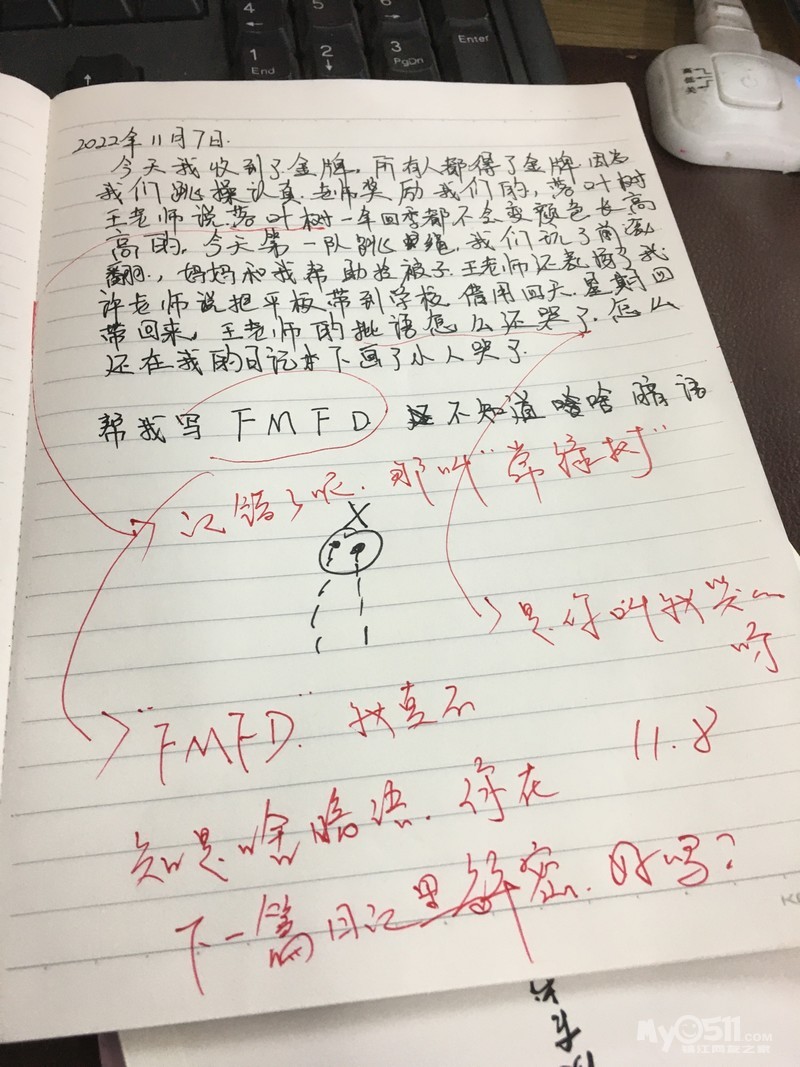 2022年11月7日.
今天我收到了金牌,所有人都得了金牌.因为
我们跳操认真.老师奖励我们的,落叶树
王老师说落叶树一年四季都不会变颜色长高
高的,今天第一队跳绳,我们玩了前滚
翻.,妈妈和我帮助 被子.王老师还表扬了我
许老师说把平板带到学校,借用四天.星期四
带回来,王老师的批语怎么还哭了.怎么
还在我的日记本下画了小人哭了.
帮我写 FMFD 不知道啥啥暗语
记错了呢.那叫"常绿树"
是你叫我哭的
呀
"FMFD" 我真不
知是啥暗语.你在
11.8
下一篇日记里解密.好吗?
4
1
End
5
2
6
3
PgDn
Enter
高
低
关
My0511.COM
镇江网友之家